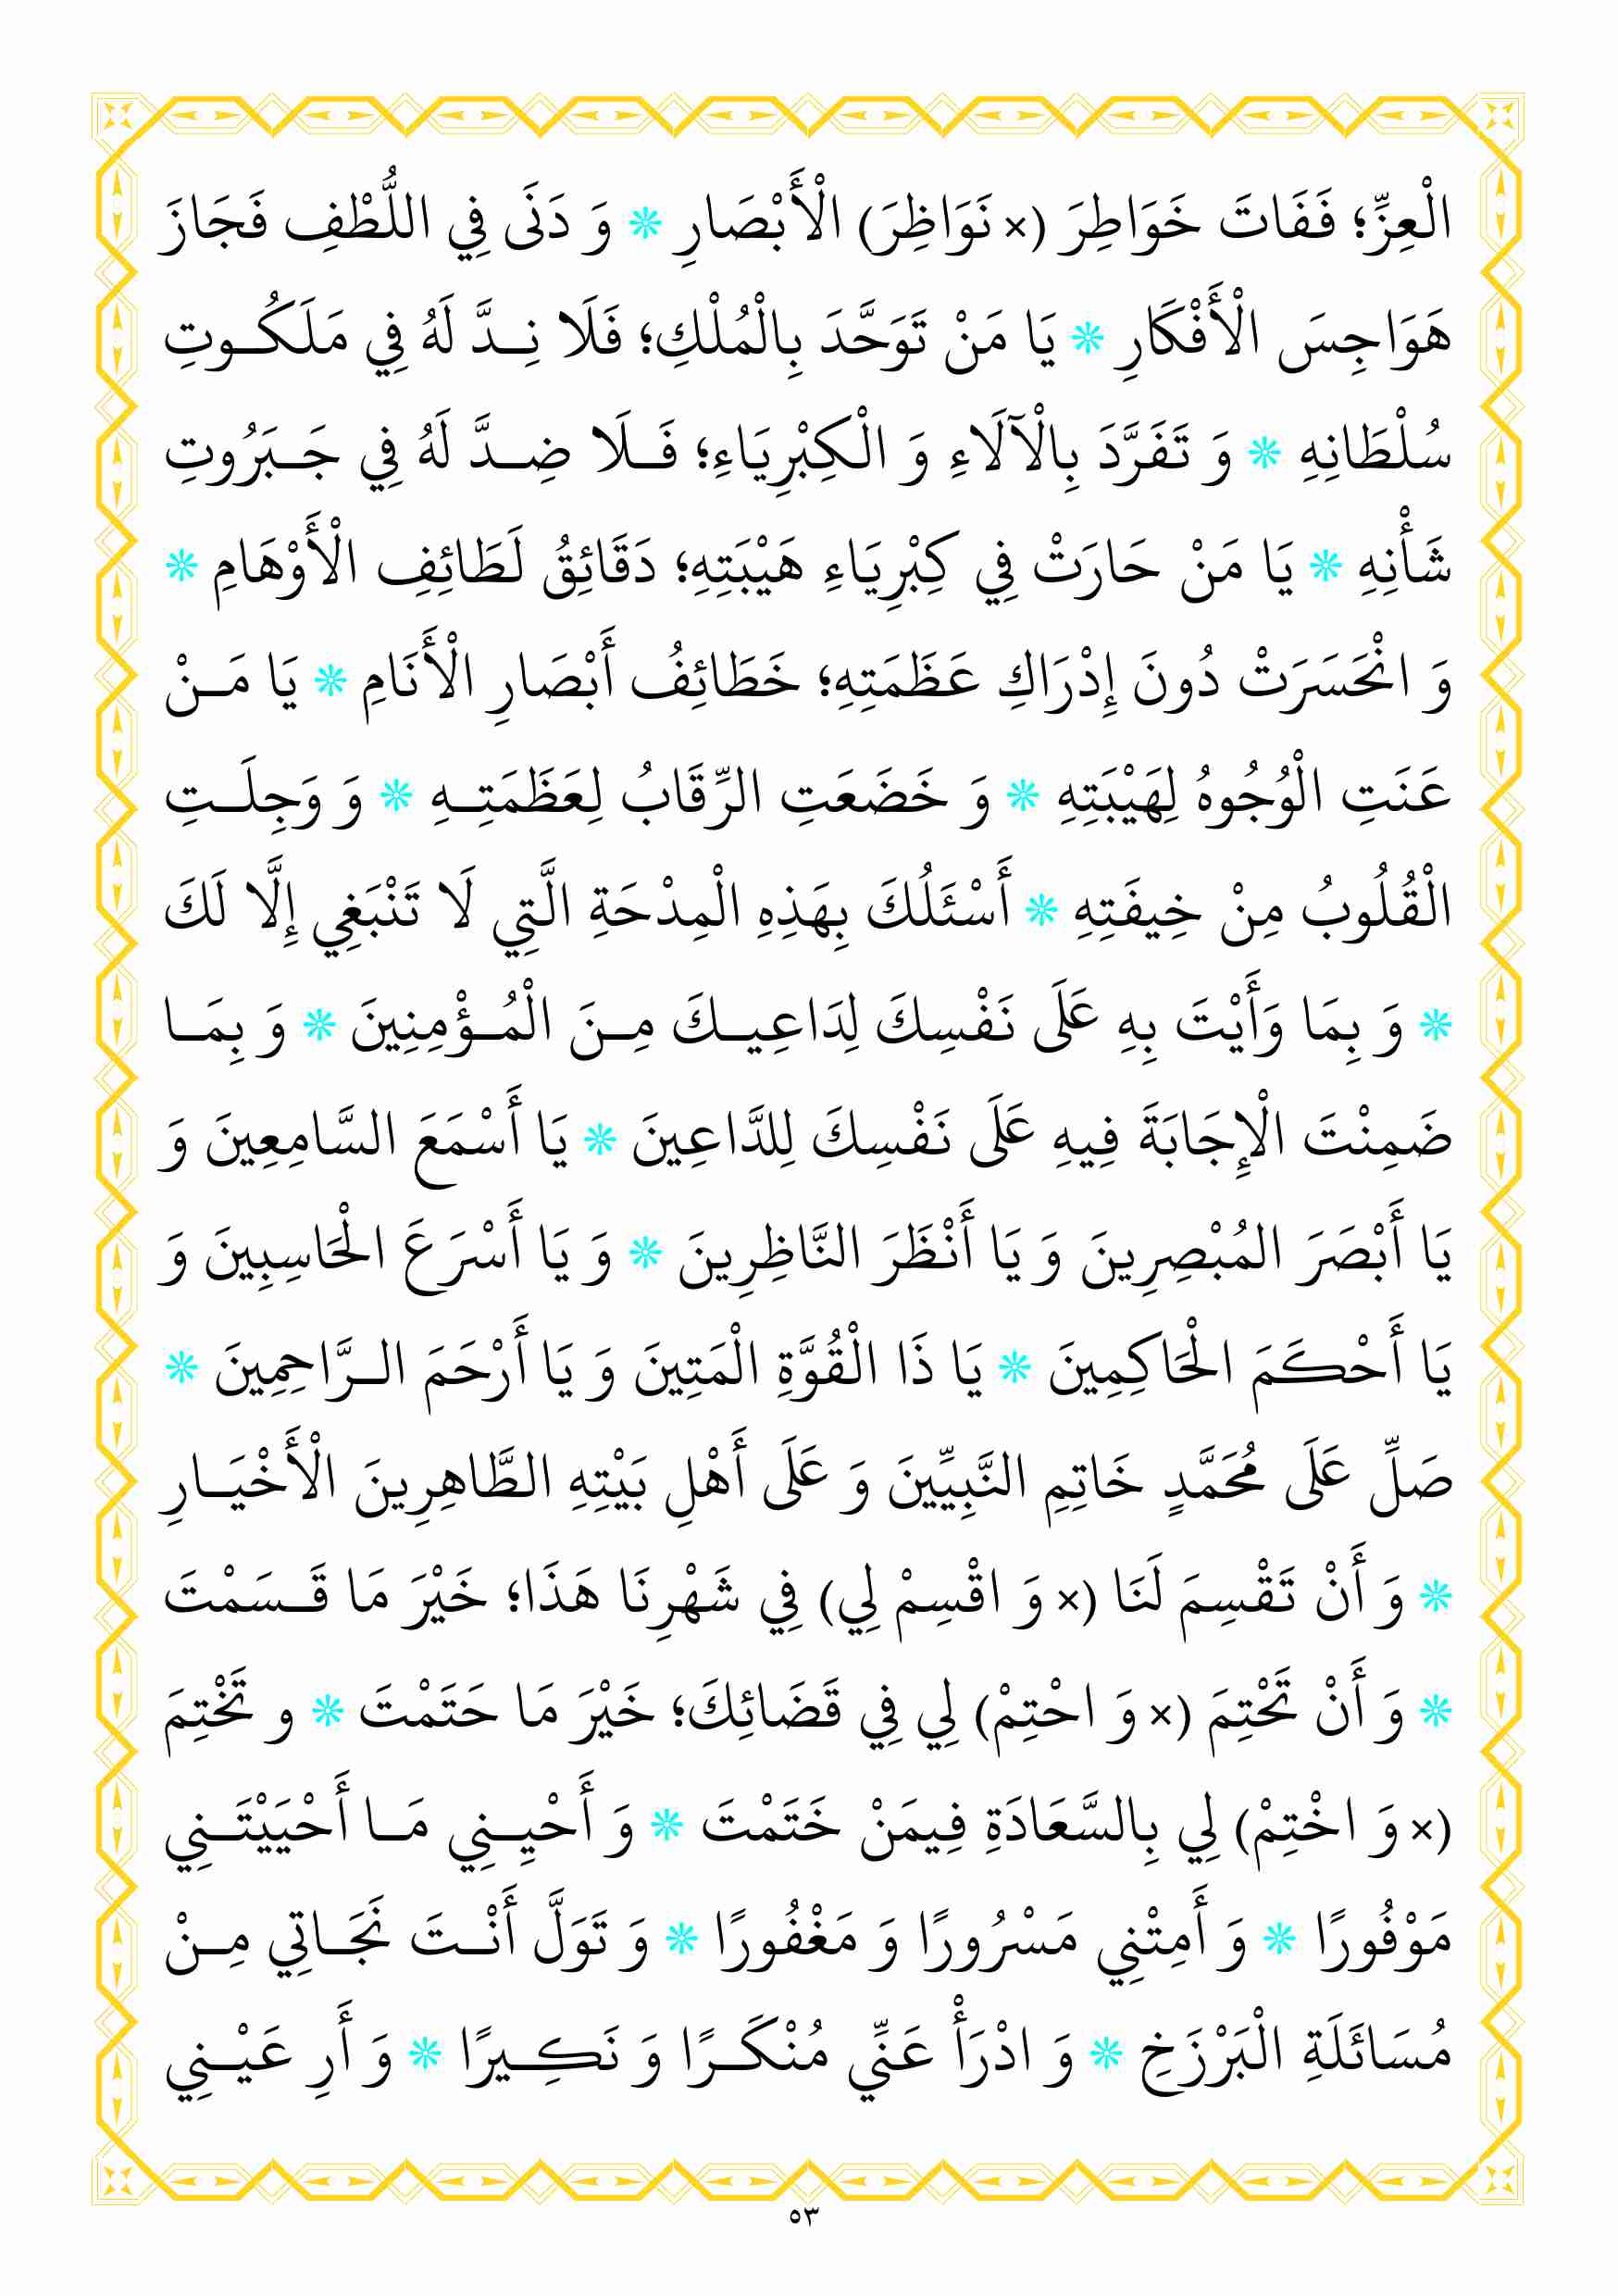 الْعِزِّ؛ فَفَاتَ خَوَاطِرَ (× نَوَاظِرَ) الْأَبْصَارِ ❊ وَ دَنَى فِي اللُّطْفِ فَجَازَ
هَوَاجِسَ الْأَفْكَارِ ❊ يَا مَنْ تَوَحَّدَ بِالْمُلْكِ؛ فَلَا نِــدَّ لَهُ فِي مَلَكُــوتِ
سُلْطَانِهِ ❊ وَ تَفَرَّدَ بِالْآلَاءِ وَ الْكِبْرِيَاءِ؛ فَــلَا ضِــدَّ لَهُ فِي جَــبَرُوتِ
شَأْنِهِ ❊ يَا مَنْ حَارَتْ فِي كِبْرِيَاءِ هَيْبَتِهِ؛ دَقَائِقُ لَطَائِفِ الْأَوْهَامِ ❊
وَ انْحَسَرَتْ دُونَ إِدْرَاكِ عَظَمَتِهِ؛ خَطَائِفُ أَبْصَارِ الْأَنَامِ ❊ يَا مَــنْ
عَنَتِ الْوُجُوهُ لِهَيْبَتِهِ ❊ وَ خَضَعَتِ الرِّقَابُ لِعَظَمَتِــهِ ❊ وَ وَجِلَــتِ
الْقُلُوبُ مِنْ خِيفَتِهِ ❊ أَسْئَلُكَ بِهَذِهِ الْمِدْحَةِ الَّتِي لَا تَنْبَغِي إِلَّا لَكَ
❊ وَ بِمَا وَأَيْتَ بِهِ عَلَى نَفْسِكَ لِدَاعِيــكَ مِــنَ الْمُــؤْمِنِينَ ❊ وَ بِمَــا
ضَمِنْتَ الْإِجَابَةَ فِيهِ عَلَى نَفْسِكَ لِلدَّاعِينَ ❊ يَا أَسْمَعَ السَّامِعِينَ وَ
يَا أَبْصَرَ المُبْصِرِينَ وَ يَا أَنْظَرَ النَّاظِرِينَ ❊ وَ يَا أَسْرَعَ الْحَاسِبِينَ وَ
يَا أَحْكَمَ الْحَاكِمِينَ ❊ يَا ذَا الْقُوَّةِ الْمَتِينَ وَ يَا أَرْحَمَ الــرَّاحِمِينَ ❊
صَلِّ عَلَى مُحَمَّدٍ خَاتِمِ النَّبِيِّينَ وَ عَلَى أَهْلِ بَيْتِهِ الطَّاهِرِينَ الْأَخْيَــارِ
❊ وَ أَنْ تَقْسِمَ لَنَا (× وَ اقْسِمْ لِي) فِي شَهْرِنَا هَذَا؛ خَيْرَ مَا قَــسَمْتَ
❊ وَ أَنْ تَحْتِمَ (× وَ احْتِمْ) لِي فِي قَضَائِكَ؛ خَيْرَ مَا حَتَمْتَ ❊ و تَخْتِمَ
(× وَ اخْتِمْ) لِي بِالسَّعَادَةِ فِيمَنْ خَتَمْتَ ❊ وَ أَحْيِــنِي مَــا أَحْيَيْتَــنِي
مَوْفُورًا ❊ وَ أَمِتْنِي مَسْرُورًا وَ مَغْفُورًا ❊ وَ تَوَلَّ أَنْــتَ نَجَــاتِي مِــنْ
مُسَائَلَةِ الْبَرْزَخِ ❊ وَ ادْرَأْ عَنِّي مُنْكَــرًا وَ نَكِــيرًا ❊ وَ أَرِ عَيْــنِي
٥٣